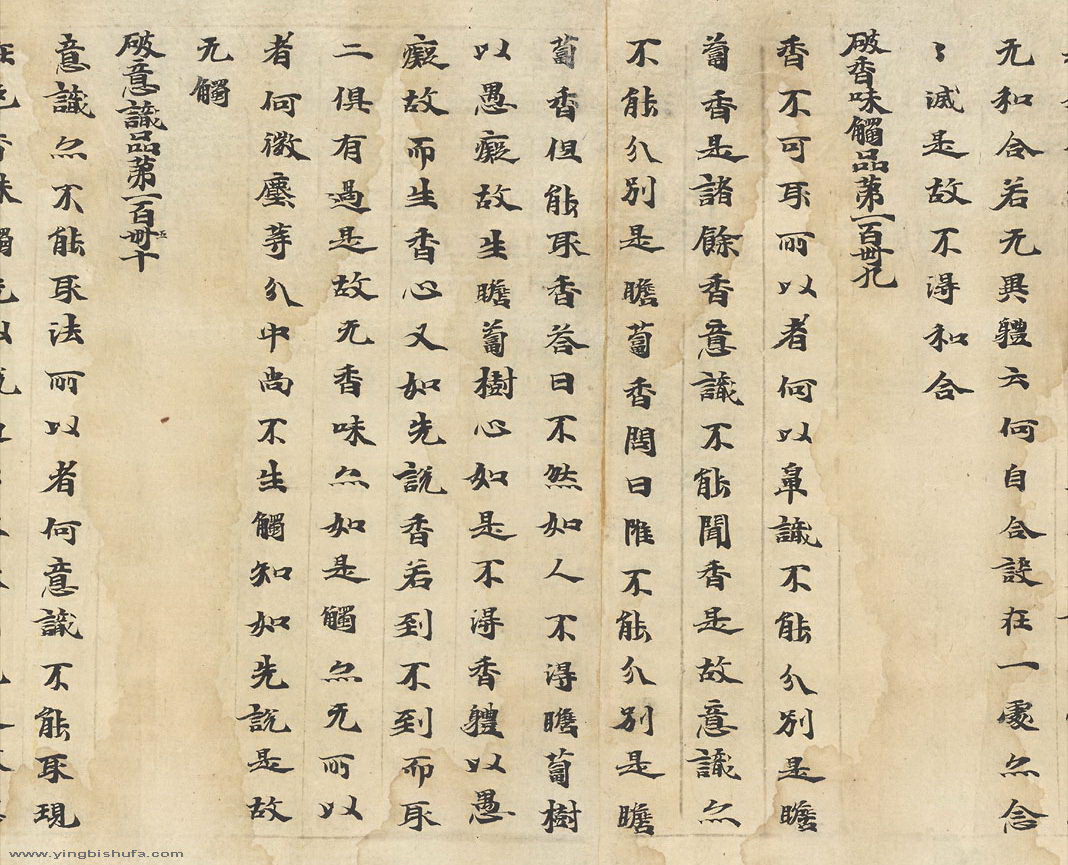 无和合若无異體云何自合設在一處亦念
〻滅是故不得和合
破香味觸品第一百卌九
香不可取所以者何以鼻識不能分別是瞻
蔔香是諸餘香意識不能聞香是故意識亦
不能分別是瞻蔔香問曰唯不能分別是瞻
蔔香但能取香答曰不然如人不得瞻蔔樹
以愚癡故生瞻蔔樹心如是不得香體以愚
癡故而生香心又如先說香若到不到而取
二俱有過是故无香味亦如是觸亦无所以
者何微塵等分中尚不生觸知如先說是故
无觸
破意識品第一百卌五十
意識亦不能取法所以者何意識不能取現
www.yingbishufa.com